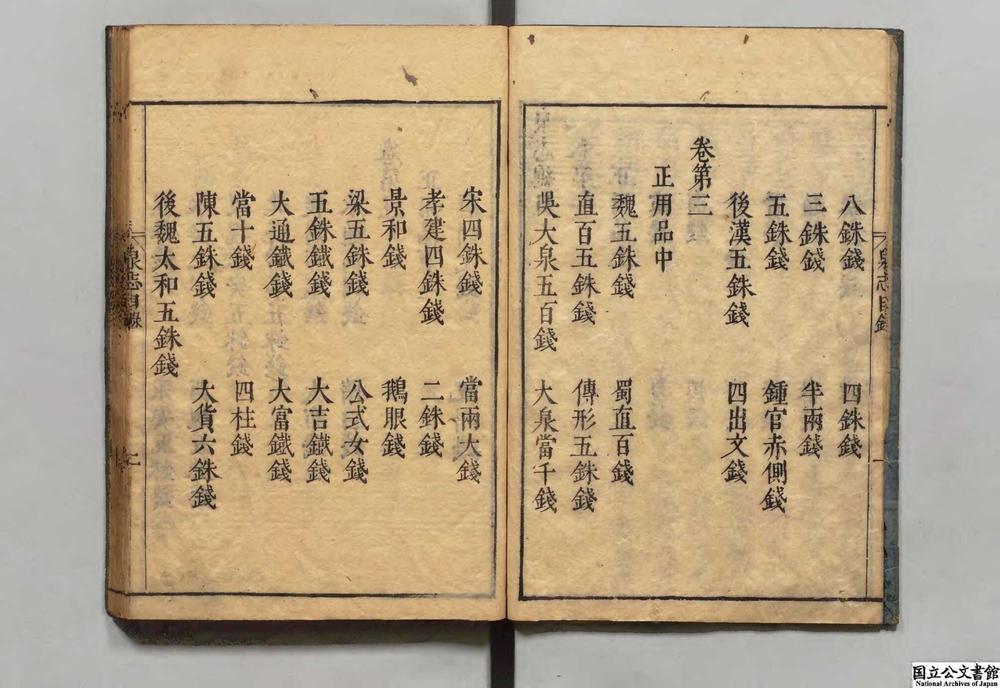 八銖錢 四銖錢
三銖錢 半兩錢
五銖錢 鍾官赤側錢
後漢五銖錢 四出文錢
卷第三
正用品中
魏五銖錢 蜀直百錢
直百五銖錢 傳形五銖錢
吳大泉五百錢 大泉當千錢
宋四銖錢 當兩大錢
孝建四銖錢 二銖錢
景和錢 鵝眼錢
梁五銖錢 公式女錢
五銖鐵錢 大吉鐵錢
大通鐵錢 大富鐵錢
當十錢 四柱錢
陳五銖錢 大貨六銖錢
後魏太和五銖錢
泉志目錄
泉志目錄
国立公文書館
National Archives of Japan